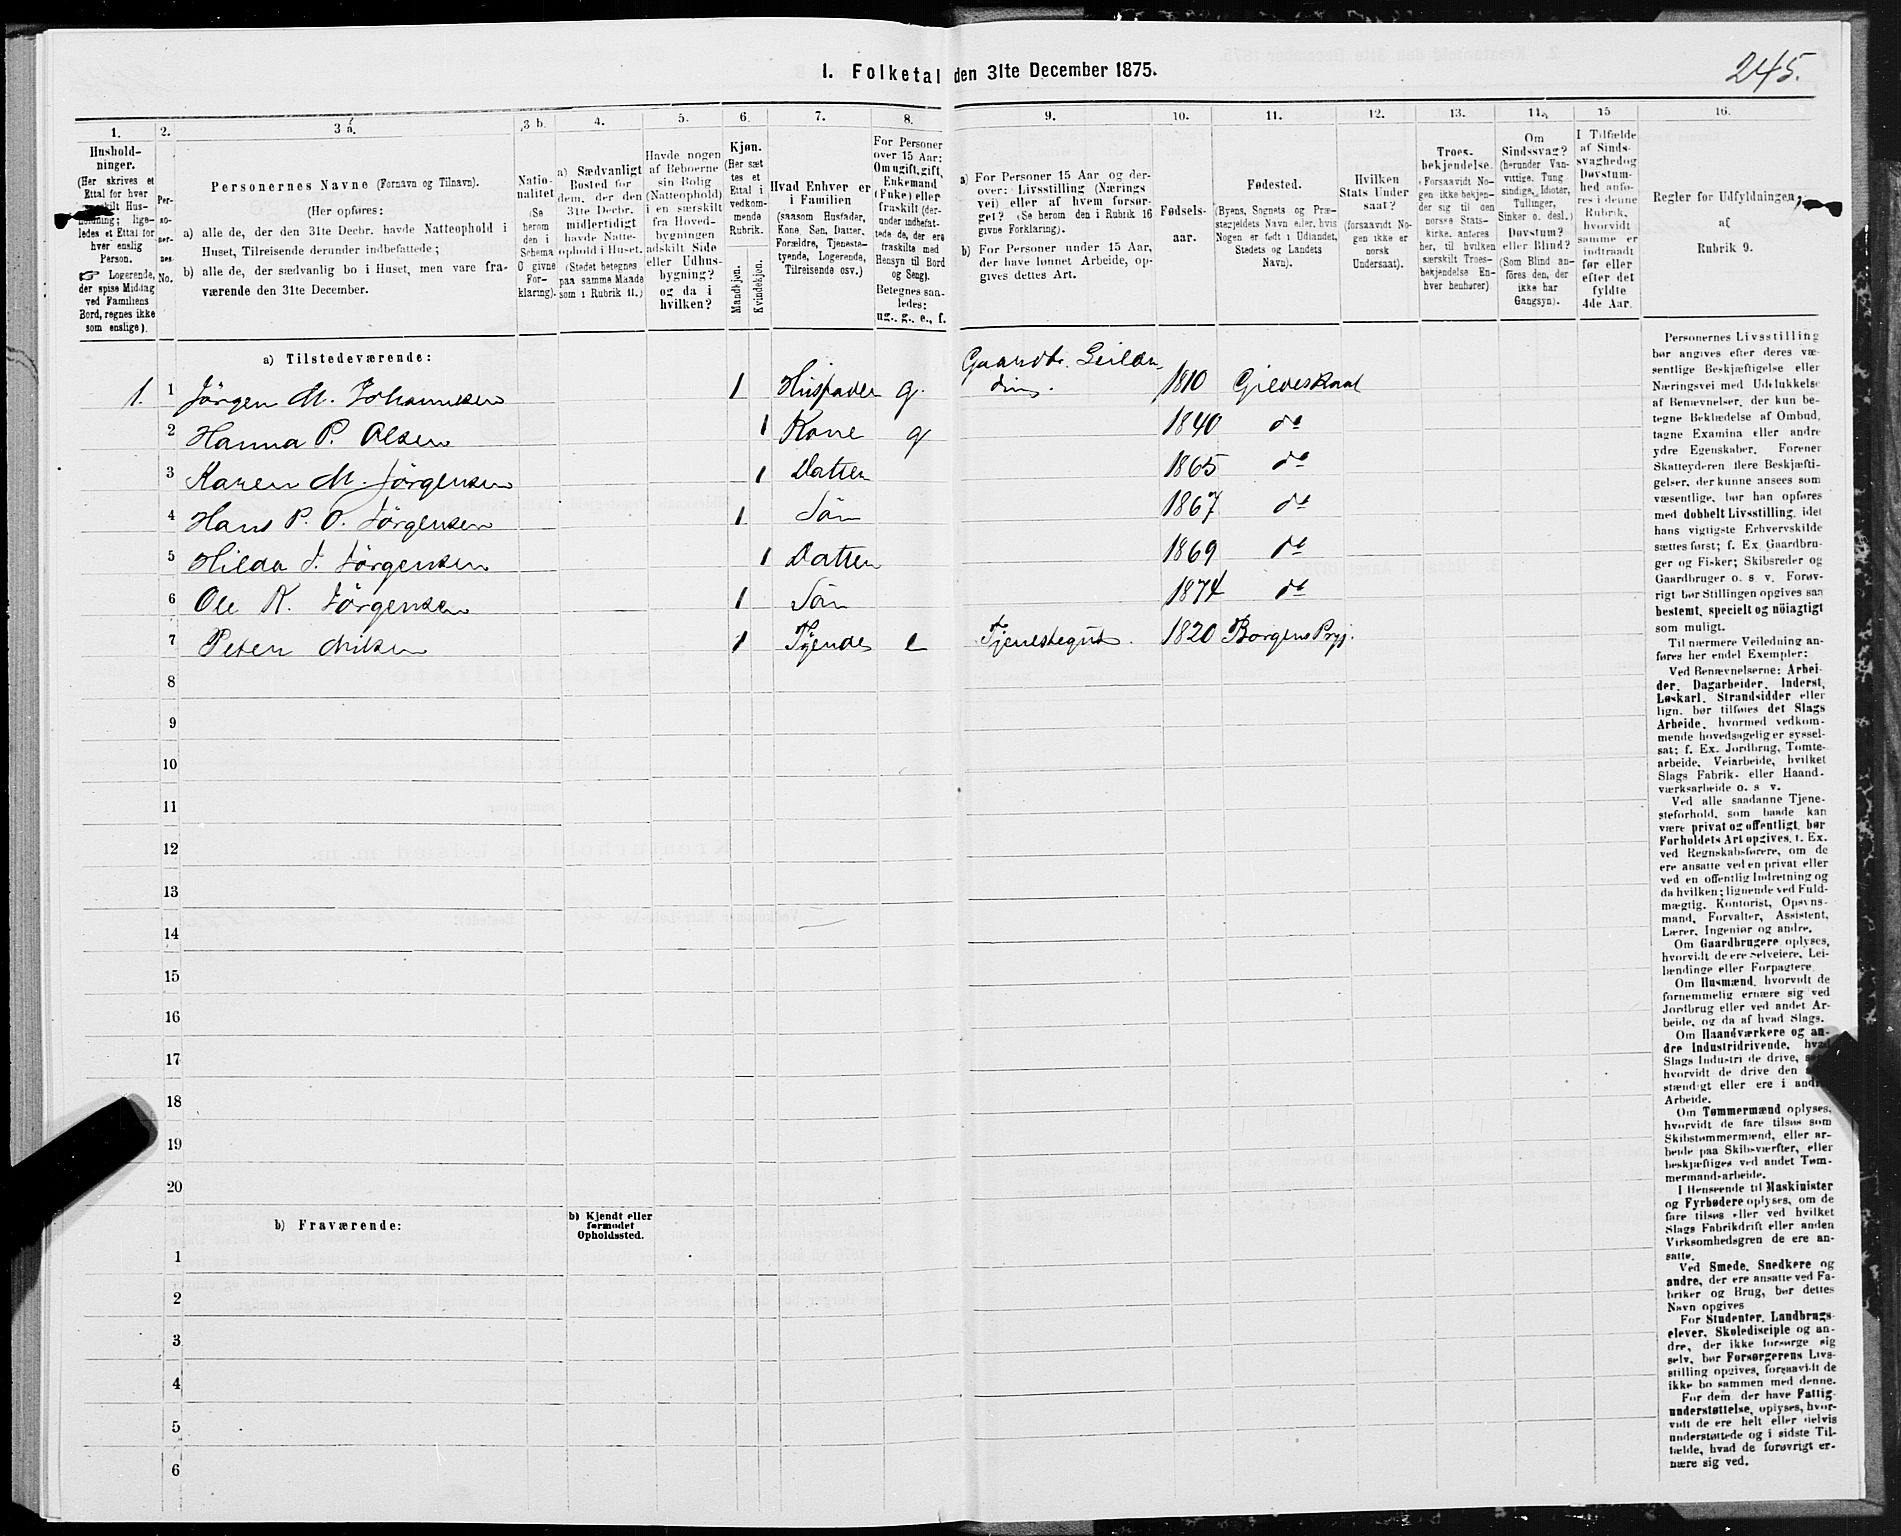 245.
1. Folketal den 31te December 1875.
1.
Hushold-
ninger.
(Her skrives et
Ettal for hver
særskilt Hus-
holdning; lige-
ledes et Ettal for
hver enslig
Person.
☞ Logerende,
der spise Middag
ved Familiens
Bord, regnes ikke
som enslige).
2.
Per-
so-
ner-
nes
No.
3 a.
Personernes Navne (Fornavn og Tilnavn).
(Her opføres:
a) alle de, der den 31te Decbr. havde Natteophold i
Huset, Tilreisende derunder indbefattede;
b) alle de, der sædvanlig bo i Huset, men vare fra-
værende den 31te December.
3 b.
Natio-
nalitet
(Se
herom
den i
Schema
0 givne
For-
klaring).
4.
a) Sædvanligt
Bosted for
dem, der den
31te Decbr.
midlertidigt
havde Natte-
ophold i Huset.
(Stedet betegnes
paa samme Maade
som i Rubrik 11.)
5.
Havde nogen
af Beboerne
sin Bolig
(Natteophold)
i en særskilt
fra Hoved-
bygningen
adskilt Side
eller Udhus-
bygning?
og da i
hvilken?
6.
Kjøn.
(Her sæt
tes et
Ettal i
vedkom-
mende
Rubrik.
Mandkjøn.
Kvindekjøn.
7.
Hvad Enhver er
i Familien
(saasom Husfader,
Kone, Søn, Datter,
Forældre, Tjeneste-
tyende, Logerende,
Tilreisende osv.)
8.
For Personer
over 15 Aar:
Om ugift, gift,
Enkemand
(Enke) eller
fraskilt (der-
under indbefat-
tede de, der ere
fraskilte med
Hensyn til Bord
og Seng).
Betegnes saa-
ledes:
ug., g., e., f.
9.
a) For Personer 15 Aar og der-
over: Livsstilling (Nærings
vei) eller af hvem forsør-
get? (Se herom den i Rubrik 16
givne Forklaring).
b) For Personer under 15 Aar,
der have lønnet Arbeide, op-
gives dettes Art.
10.
Fødsels-
aar.
11.
Fødested.
(Byens, Sognets og Præ-
stegjeldets Navn eller, hvis
Nogen er født i Udlandet,
Stedets og Landets
Navn).
12.
Hvilken
Stats Under
saat?
(forsaavidt No-
gen ikke er
norsk
Undersaat).
13.
Troes-
bekjendelse.
(Forsaavidt No-
gen ikke bekjen-
der sig til den
norske Stats-
kirke, anføres
her, til hvilken
særskilt Troes-
bekjendelse En-
hver henhører)
14.
Om
Sindssvag?
(herunder Van-
vittige, Tung
sindige, Idioter,
Tullinger,
Sinker o. desl.)
Døvstum?
eller Blind?
(Som Blind an-
føres den, der
ikke har
Gangsyn).
15
I Tilfælde
af Sinds-
svaghed og
Døvstum-
hed anfø-
res i denne
Rubrik,
hvorvidt
samme er
indtraadt
før eller
efter det
fyldte
4de Aar.
16.
Regler for Udfyldningen
af
Rubrik 9.
a) Tilstedeværende:
1. 1 Jörgen M. Johannesen 1 Husfader g. Gaardbr. Leilæn-
ding. 1810 Gildeskaal
2 Hanna P. Olsen 1 Kone g 1840 do
3 Karen M. Jörgensen 1 Datter 1865 do
4 Hans P. O. Jörgensen 1 Sön 1867 do
5 Hilda J. Jörgensen 1 Datter 1869 do
6 Ole K. Jörgensen 1 Sön 1874 do
7 Peter Nilsen 1 Tyende e Tjenestegut. 1820 Borgens Prgj.
8
9
10
11
12
13
14
15
16
17
18
19
20
b) Fraværende:
b) Kjendt eller
formodet
Opholdssted.
1
2
3
4
5
6
Personernes Livsstilling
bør angives efter deres væ-
sentlige Beskjæftigelse eller
Næringsvei med Udelukkelse
af Benævnelser, der kun be-
tegne Beklædelse af Ombud,
tagne Examina eller andre
ydre Egenskaber. Forener
Skatteyderen flere Beskjæfti-
gelser, der kunne ansees som
væsentlige, bør han opføres
med dobbelt Livsstilling, idet
hans vigtigste Erhvervskilde
sættes først; f. Ex. Gaardbru-
ger og Fisker; Skibsreder og
Gaardbruger o. s. v. Forøv-
rigt bør Stillingen opgives saa
bestemt, specielt og nöiagtigt
som muligt.
Til nærmere Veiledning an-
føres her endel Exempler:
Ved Benævnelserne: Arbei-
der, Dagarbeider, Inderst,
Løskarl, Strandsidder eller
lign. bør tilføies det Slags
Arbeide, hvormed vedkom-
mende hovedsagelig er syssel-
sat; f. Ex. Jordbrug, Tomte-
arbeide, Veiarbeide, hvilket
Slags Fabrik- eller Haand-
værksarbeide o. s v.
Ved alle saadanne Tjene-
steforhold, som baade kan
være privat og offentligt, bør
Forholdets Art opgives, f. Ex.
ved Regnskabsførere, om de
ere ansatte ved en privat eller
ved en offentlig Indretning og
da hvilken; lignende ved Fuld-
mægtig, Kontorist, Opsyns-
mand, Forvalter, Assistent,
Lærer, Ingeniør og andre.
Om Gaardbrugere oplyses,
hvorvidt de ere Selveiere, Lei-
lændinge eller Forpagtere
Om Husmænd, hvorvidt de
fornemmelig ernære sig ved
Jordbrug eller ved andet Ar-
beide, og da af hvad Slags.
Om Haandværkere og an-
dre Industridrivende, hvad
Slags Industri de drive, samt
hvorvidt de drive den
stændigt eller ere i andres
Arbeide.
Om Tømmermænd oplyses,
hvorvidt de fare tilsøs som
Skibstømmermænd, eller ar-
beide paa Skibsværfter, eller
beskjæftiges ved andet Tøm-
mermandsarbeide.
I Henseende til Maskinister
og Fyrbødere oplyses, om de
fare tilsøs eller ved hvilket
Slags Fabrikdrift eller anden
Virksomhedsgren de ere an-
satte.
Ved Smede, Snedkere og
andre, der ere ansatte ved Fa-
briker og Brug, bør dettes
Navn opgives
For Studenter, Landbrugs-
elever, Skoledisciple og an-
dre, der ikke forsørge sig
selv, bør Forsørgerens Livs-
stilling opgives, forsaavidt de
ikke bo sammen med denne.
For dem, der have Fattig-
understøttelse, oplyses, hvor-
vidt de ere helt eller delvis
understøttede og i sidste Til-
fælde, hvad de forøvrigt er-
nære sig ved.